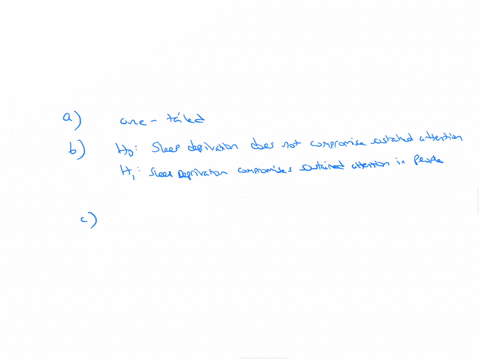 a) one-tailed
b) H0: Sleep deprivation does not compromise sustained attention
H1: Sleep Deprivation compromises sustained attention in people
c)